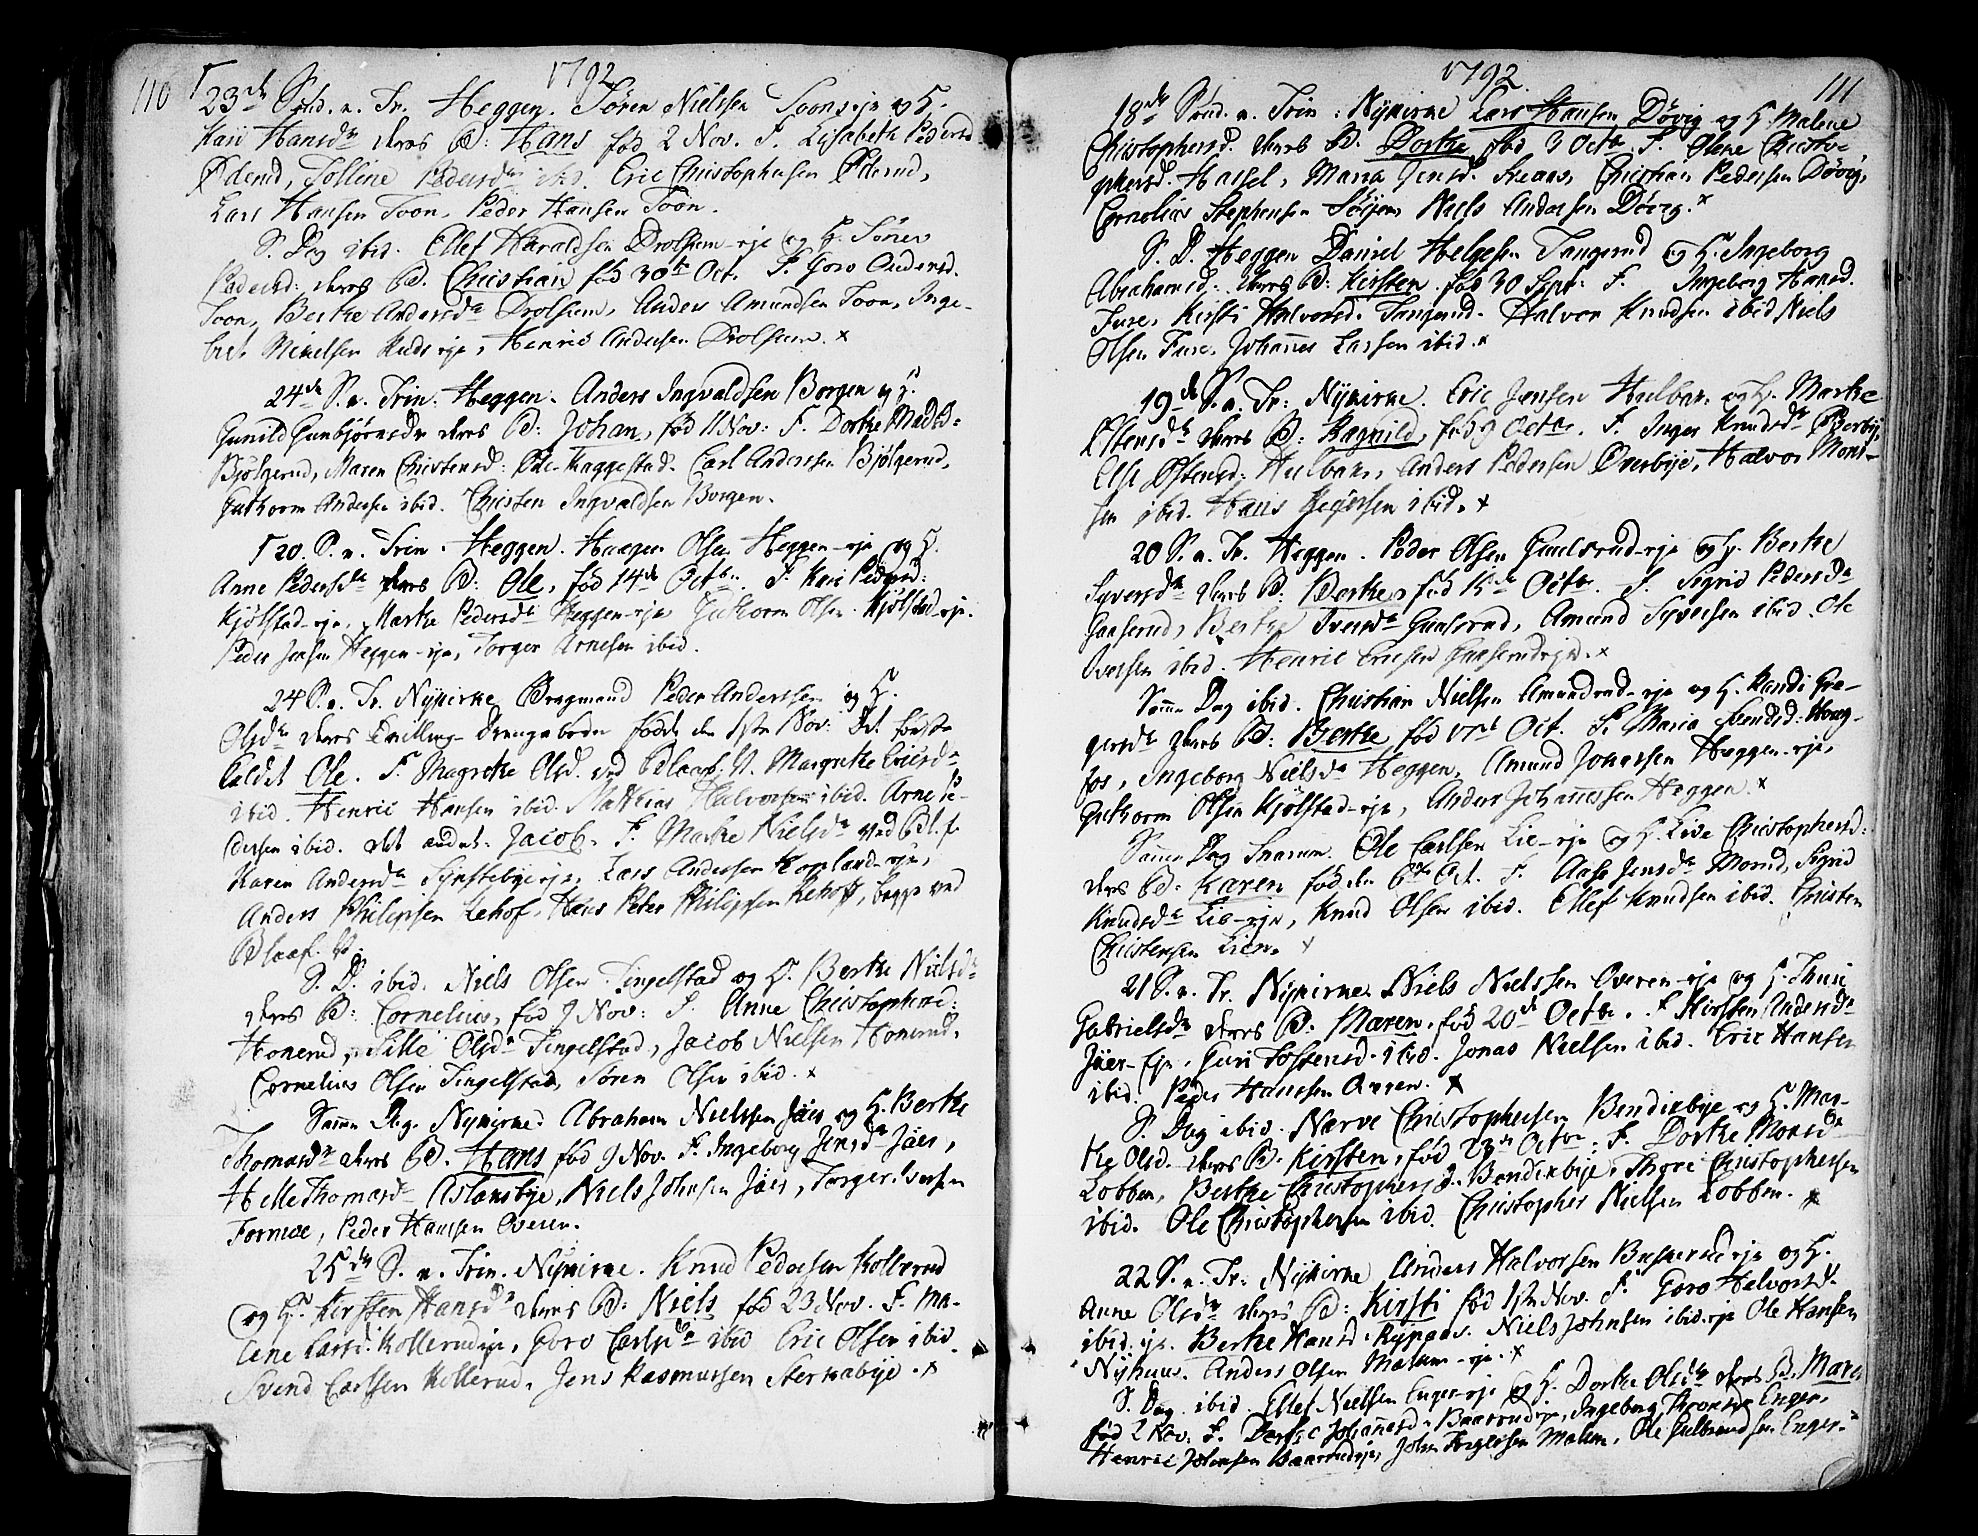 110
1792
23de Sønd. n. Tr. Heggen. Søren Nielssen Soons eje og H.
Kari Hansdr deres B: Hans fød 2 Nov. F. Lisabeth Pedersd
Øderud, Tolline Pedersdr ibid. Eric Christophersen Øderud,
Lars Hansen Toon. Peder Hansen Toon.
S. Dag ibid. Ellef Haraldsen Drolsum-eje og H.
Pedersd: deres B. Christian fød 30te Oct. F. Goro Andersd.
Toon, Berthe Andersdr Drolsum, Anders Amundsen Toon, Inge-
bret Mikelsen Ruds eje, Henric Andersen Drolsum. x
24de S. n. Trin: Heggen. Anders Ingvaldsen Borgen og H.
Gunild Gunbjørnsdr deres B: Johan, fød 11 Nov: F. Dorthe Madsd.
Bjølgerud, Maren Christensd: Ole Haggestad. Carl Andersen Bjølgerud,
Guthorm Andersen ibid. Christen Ingvaldsen Borgen.
20. S. n. Trin. Heggen. Haagen Olsen Heggen-eje og H.
Anne Pedersdr deres B: Ole, fød 14de Octbr. F. Kari Pedersd:
Kjølstad-eje, Marthe Pedersdr Heggen-eje Guthorm Olsen Kjølstad-eje.
Peder Jensen Heggen-eje, Torger Arnesen ibid.
24 S. n. Tr. Nykirke Bragmand Peder Anderssen og H.
Olsdr deres Tvilling drengebørn fødde den 1ste Nov: Det første
kaldet Ole. F. Magrethe Olsd. ved Blaaf. V. Margrethe Ericsdr
ibid. Henric Hansen ibid. Mathias Halvorsen ibid. Arne Pe-
dersen ibid. det andet: Jacob. F. Marthe Nielsdr ved Bl. f.
Karen Andersdr eje, Lars Andersen Hopland-eje,
Anders Philipsen Lehof, Hans Peter Philipsen Lehoff, begge ved
Blaaf. V.
S. D. ibid. Niels Olsen Tingelstad og H. Berthe Nielsdr
deres B: Cornelius, fød 9 Nov: F. Anne Christophersd:
Honerud, Sille Olsdr Tingelstad, Jacob Nielsen Honerud,
Cornelius Olsen Tingelstad, Søren Olsen ibid. x
Samme Dag. Nykirke. Abraham Nielssen Jaer og H. Berthe
Thomasdr deres B. Hans fød 9 Nov. F. Ingeborg Jensdr Jaer,
Helle Thomasdr Aslaksbye, Niels Johnsen Jaer, Torger Iversen
Formoe, Peder Hansen Overen.
25de S. n. Trin. Nykirke. Knud Pedersen Kollerud
og H. Kirsten Hansdr deres B: Niels fød 23 Nov. F. Ma-
lene Larsd. Kollerudeje, Goro Carlsdr ibid Eric Olsen ibid.
Svend Carlsen Kollerud, Jens Rasmussen Sterkabye. x
111
1792
18de Sønd. n. Trin: Nykirke Lars Hansen Døvig og H. Malene
Christophersd. deres B. Dorthe fød 3 Octb F. Olene Christo-
phersd. Hassel, Maria Jensd. Christian Pedersen Døvig,
Cornelius Stephensen Niels Andersen Døvig. x
S. D. Heggen Daniel Helgesen Tangerud og H. Ingeborg
Abrahamsd. deres B: Kirsten fød 30 Sept: F. Ingeborg Hansd.
Fure, Kirsti Halvorsd. Tangerud. Halvor Knudsen ibid Niels
Olsen Fure, Johannes Larsen ibid. x
19de S. n. Tr: Nykirke. Eric Jensen Hulbak og H. Marthe
Østensdr deres B: Ragnild, fød 9 Octbr. F. Inger Knudsdr Berby,
Else Østensd. Hulbak, Anders Pedersen Overbye, Halvor Mons-
sen ibid. Hans ibid. x
20 S. n. Tr. Heggen. Peder Olsen Gunlsrud-eje og H. Berthe
Syversdr deres B: Berthe fød 15de Octbr. F. Sigrid Pedersdr
Gunserud, Berthe Iversdr Gunsrud, Amund Syversen ibid Ole
Iversen ibid. Henric Ericsen Gunserudeje. x
Samme Dag ibid. Christian Nielsen Amundrud-eje og H. Randi Gre-
gersdr deres B: Berthe fød 17de Oct. F. Maria Hoeg-
fos, Ingeborg Nielsdr Heggen, Amund Johansen Heggen-eje,
Guthorm Olsen Kjølstad-eje, Anders Johannessen Heggen. x
Samme Dag Snarum. Ole Carlsen Lie-eje og H. Live Christophersd:
deres B: Karen fød den 6te Oct. F. Aase Jensdr Moerud, Sigrid
Knudsdr Lie-eje, Knud Olsen ibid. Ellef Knudsen ibid. Christen
Christensen Lien. x
21 S. n. Tr. Nykirke. Niels Nielssen Overen-eje og H. Thuri
Gabrielsdr deres B: Maren fød 20de Octbr. F. Kirsten Andersdr
Jaer-Eje, Guri Tostensd. ibid. Jonas Nielsen ibid. Eric Hansen
ibid. Peder Hansen Overen. x
S. Dag ibid. Narve Christophersen Bendixbye og H. Mar-
the Olsd. deres B. Kirsten, fød 23de Octbr. F. Dorthe Monsdr
Lobben, Berthe Christophersd. Bendixbye, Thore Christophersen
ibid. Ole Christophersen ibid. Christopher Nielsen Lobben. x
22 S. n. Tr: Nykirke Anders Halvorsen Buskerud eje og H.
Anne Olsdr deres B: Kirsti fød 1ste Nov. F. Goro Halvorsd.
ibid. eje. Berthe Hansd. Niels Johnsen ibid. eje Ole Hansen
Nyhuus. Anders Olsen Malum-eje. x
S. Dag ibid. Ellef Nielsen Enger-eje og H. Dorthe Olsdr deres B. Maren
fød 2 Nov. F. Dorthe Johannesd. Baarsrudeje, Ingeborg Enger,
Henric Johansen Baarsrudeje, John Torgersen Malum, Ole Gulbrandsen Enger.